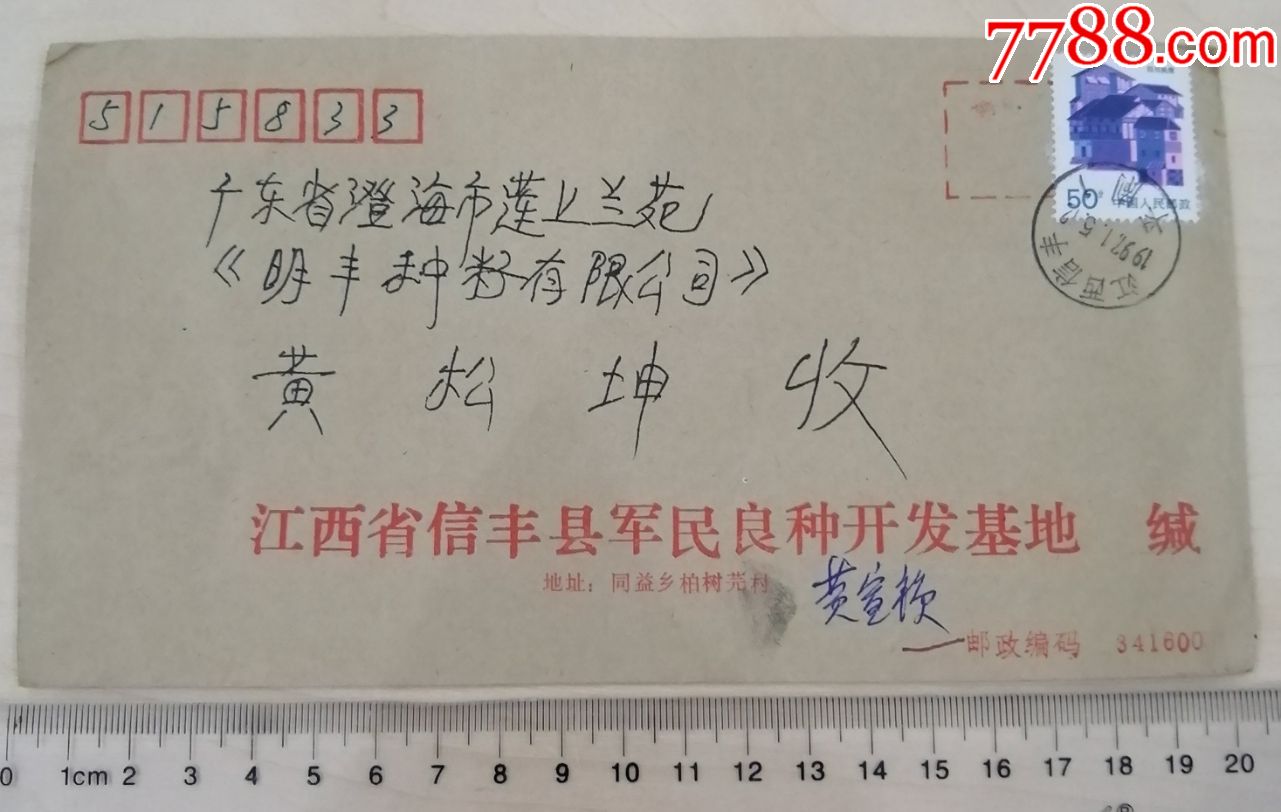 7788.com
515833
广东省澄海市莲上兰苑
《明丰种籽有限公司》
黄松坤 收
50分 中国人民邮政
江西信丰
1997.1.5
江西省信丰县军民良种开发基地 缄
地址：同益乡柏树芫村
黄宣
邮政编码 341600
0 1cm 2 3 4 5 6 7 8 9 10 11 12 13 14 15 16 17 18 19 20